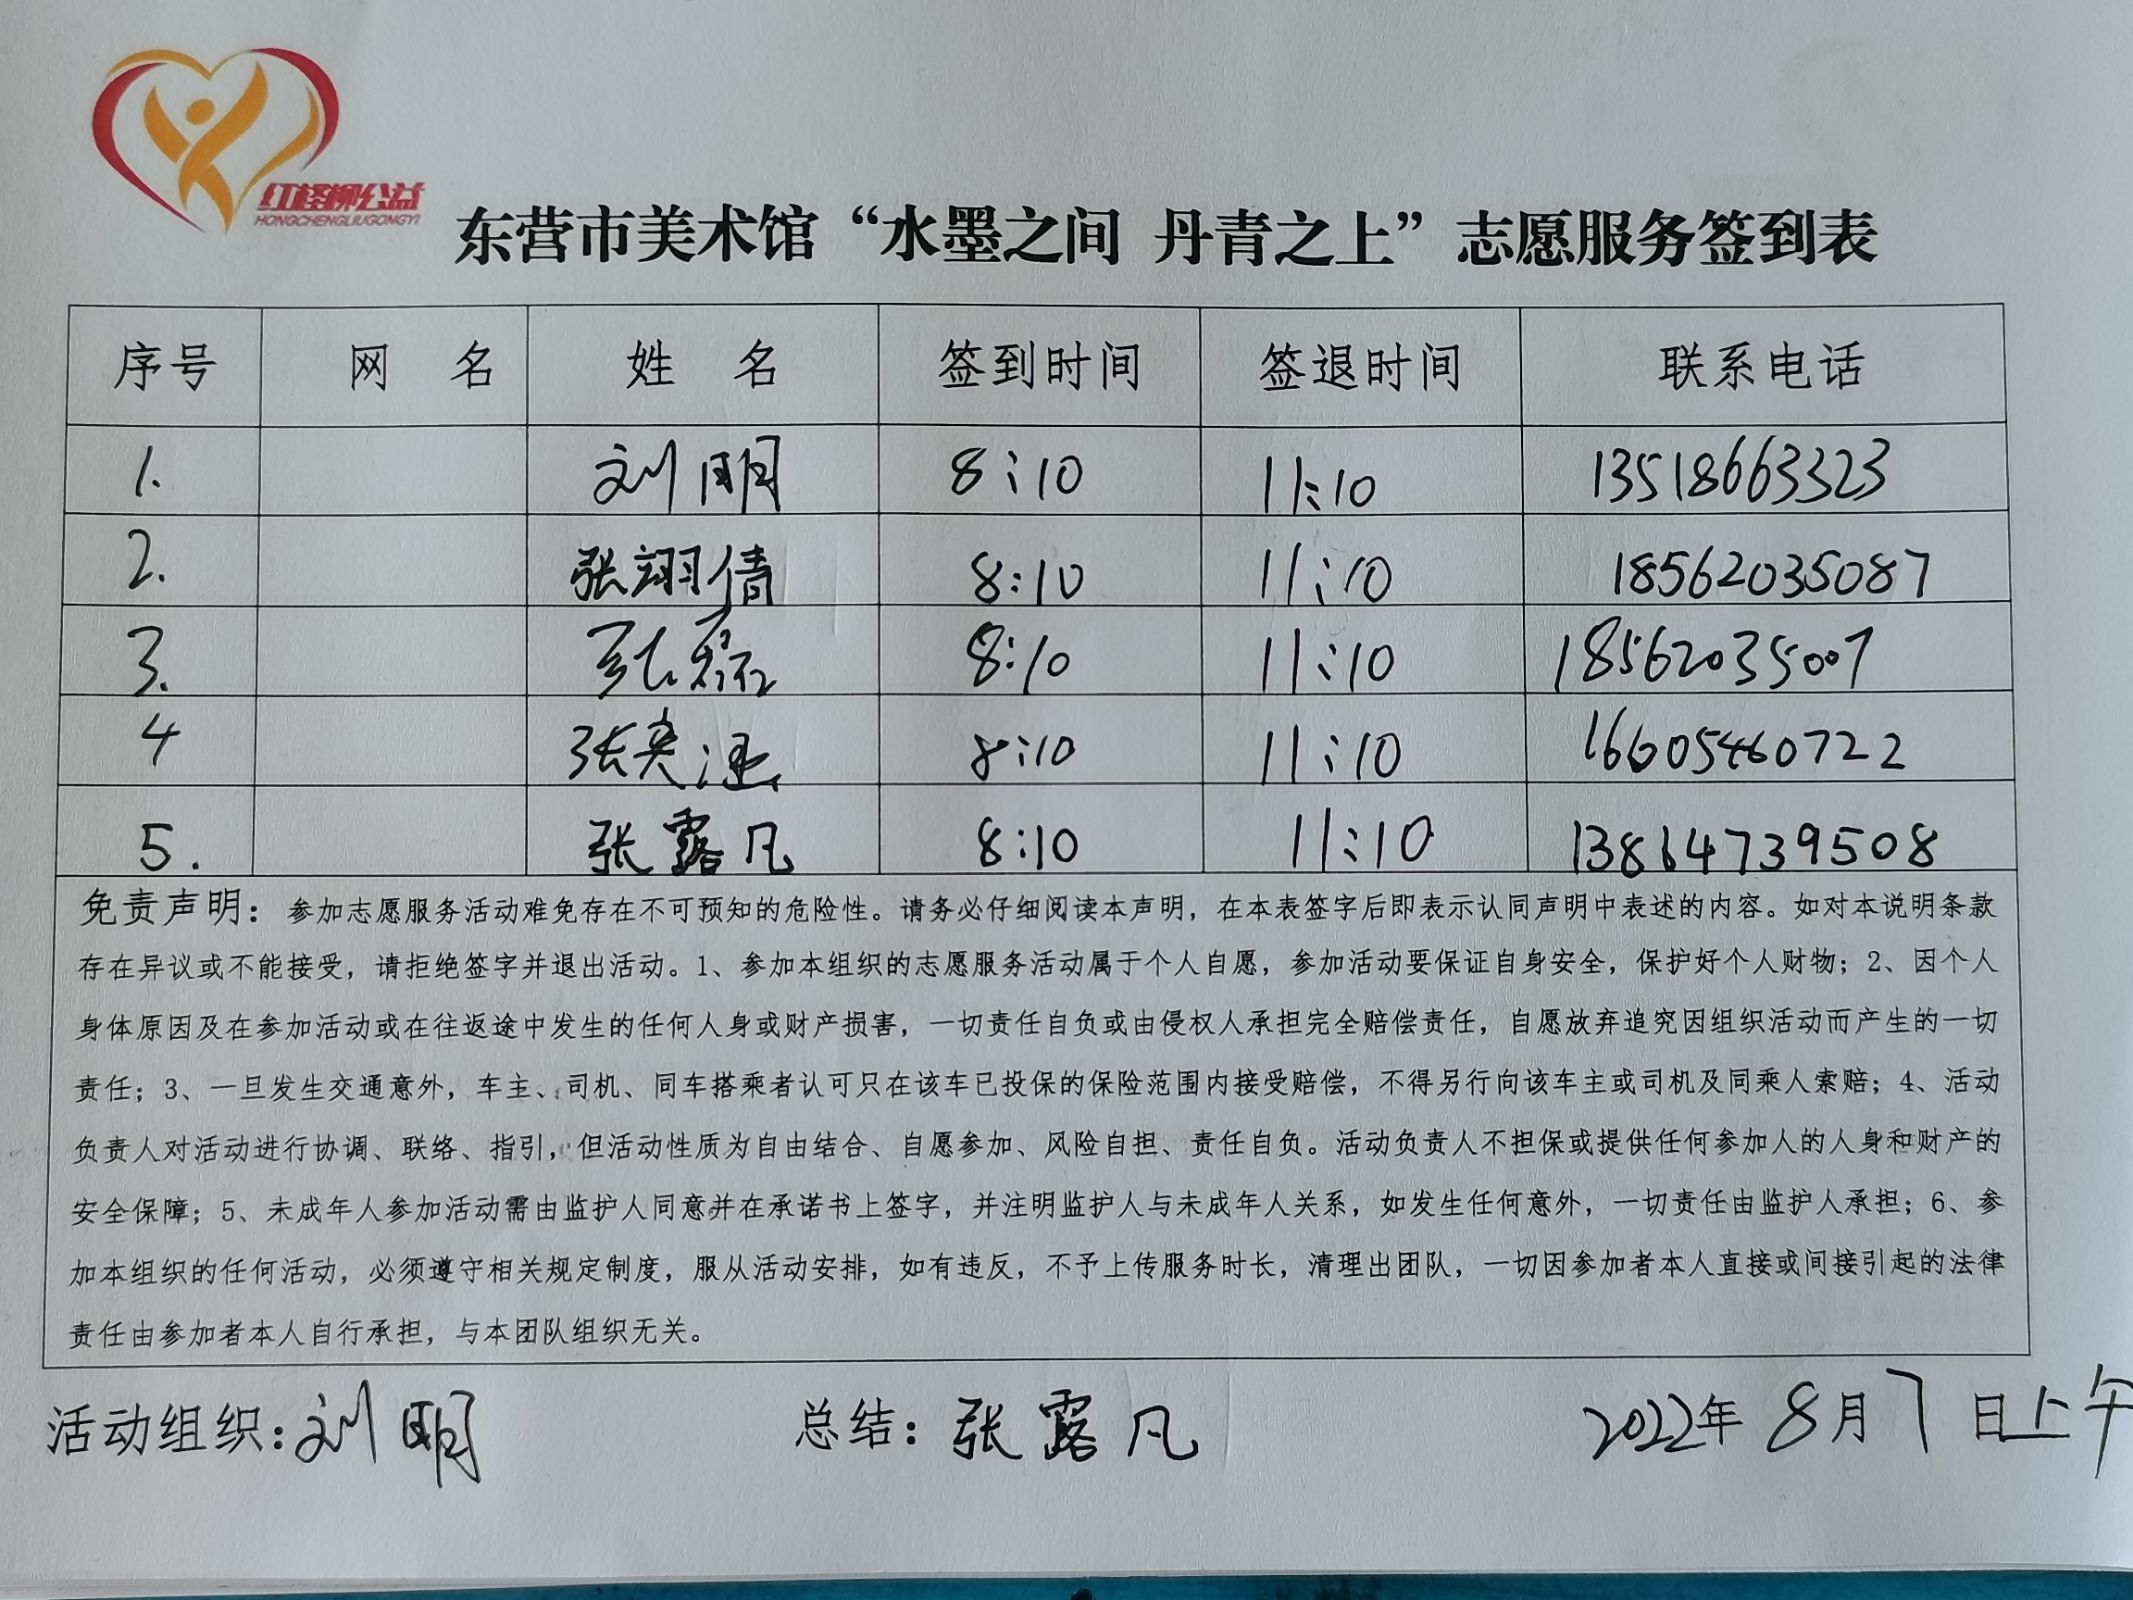 红柽柳公益
HONGCHENGLIUGONGYI
东营市美术馆“水墨之间 丹青之上”志愿服务签到表
序号 网 名 姓 名 签到时间 签退时间 联系电话
1. 刘明 8:10 11:10 13518663323
2. 张翊倩 8:10 11:10 18562035087
3. 张磊 8:10 11:10 18562035007
4 张 8:10 11:10 16605460722
5. 张露凡 8:10 11:10 13864739508
免责声明：参加志愿服务活动难免存在不可预知的危险性。请务必仔细阅读本声明，在本表签字后即表示认同声明中表述的内容。如对本说明条款
存在异议或不能接受，请拒绝签字并退出活动。1、参加本组织的志愿服务活动属于个人自愿，参加活动要保证自身安全，保护好个人财物；2、因个人
身体原因及在参加活动或在往返途中发生的任何人身或财产损害，一切责任自负或由侵权人承担完全赔偿责任，自愿放弃追究因组织活动而产生的一切
责任；3、一旦发生交通意外，车主、司机、同车搭乘者认可只在该车已投保的保险范围内接受赔偿，不得另行向该车主或司机及同乘人索赔；4、活动
负责人对活动进行协调、联络、指引，但活动性质为自由结合、自愿参加、风险自担、责任自负。活动负责人不担保或提供任何参加人的人身和财产的
安全保障；5、未成年人参加活动需由监护人同意并在承诺书上签字，并注明监护人与未成年人关系，如发生任何意外，一切责任由监护人承担；6、参
加本组织的任何活动，必须遵守相关规定制度，服从活动安排，如有违反，不予上传服务时长，清理出团队，一切因参加者本人直接或间接引起的法律
责任由参加者本人自行承担，与本团队组织无关。
活动组织：刘明 总结：张露凡 2022年8月7日上午